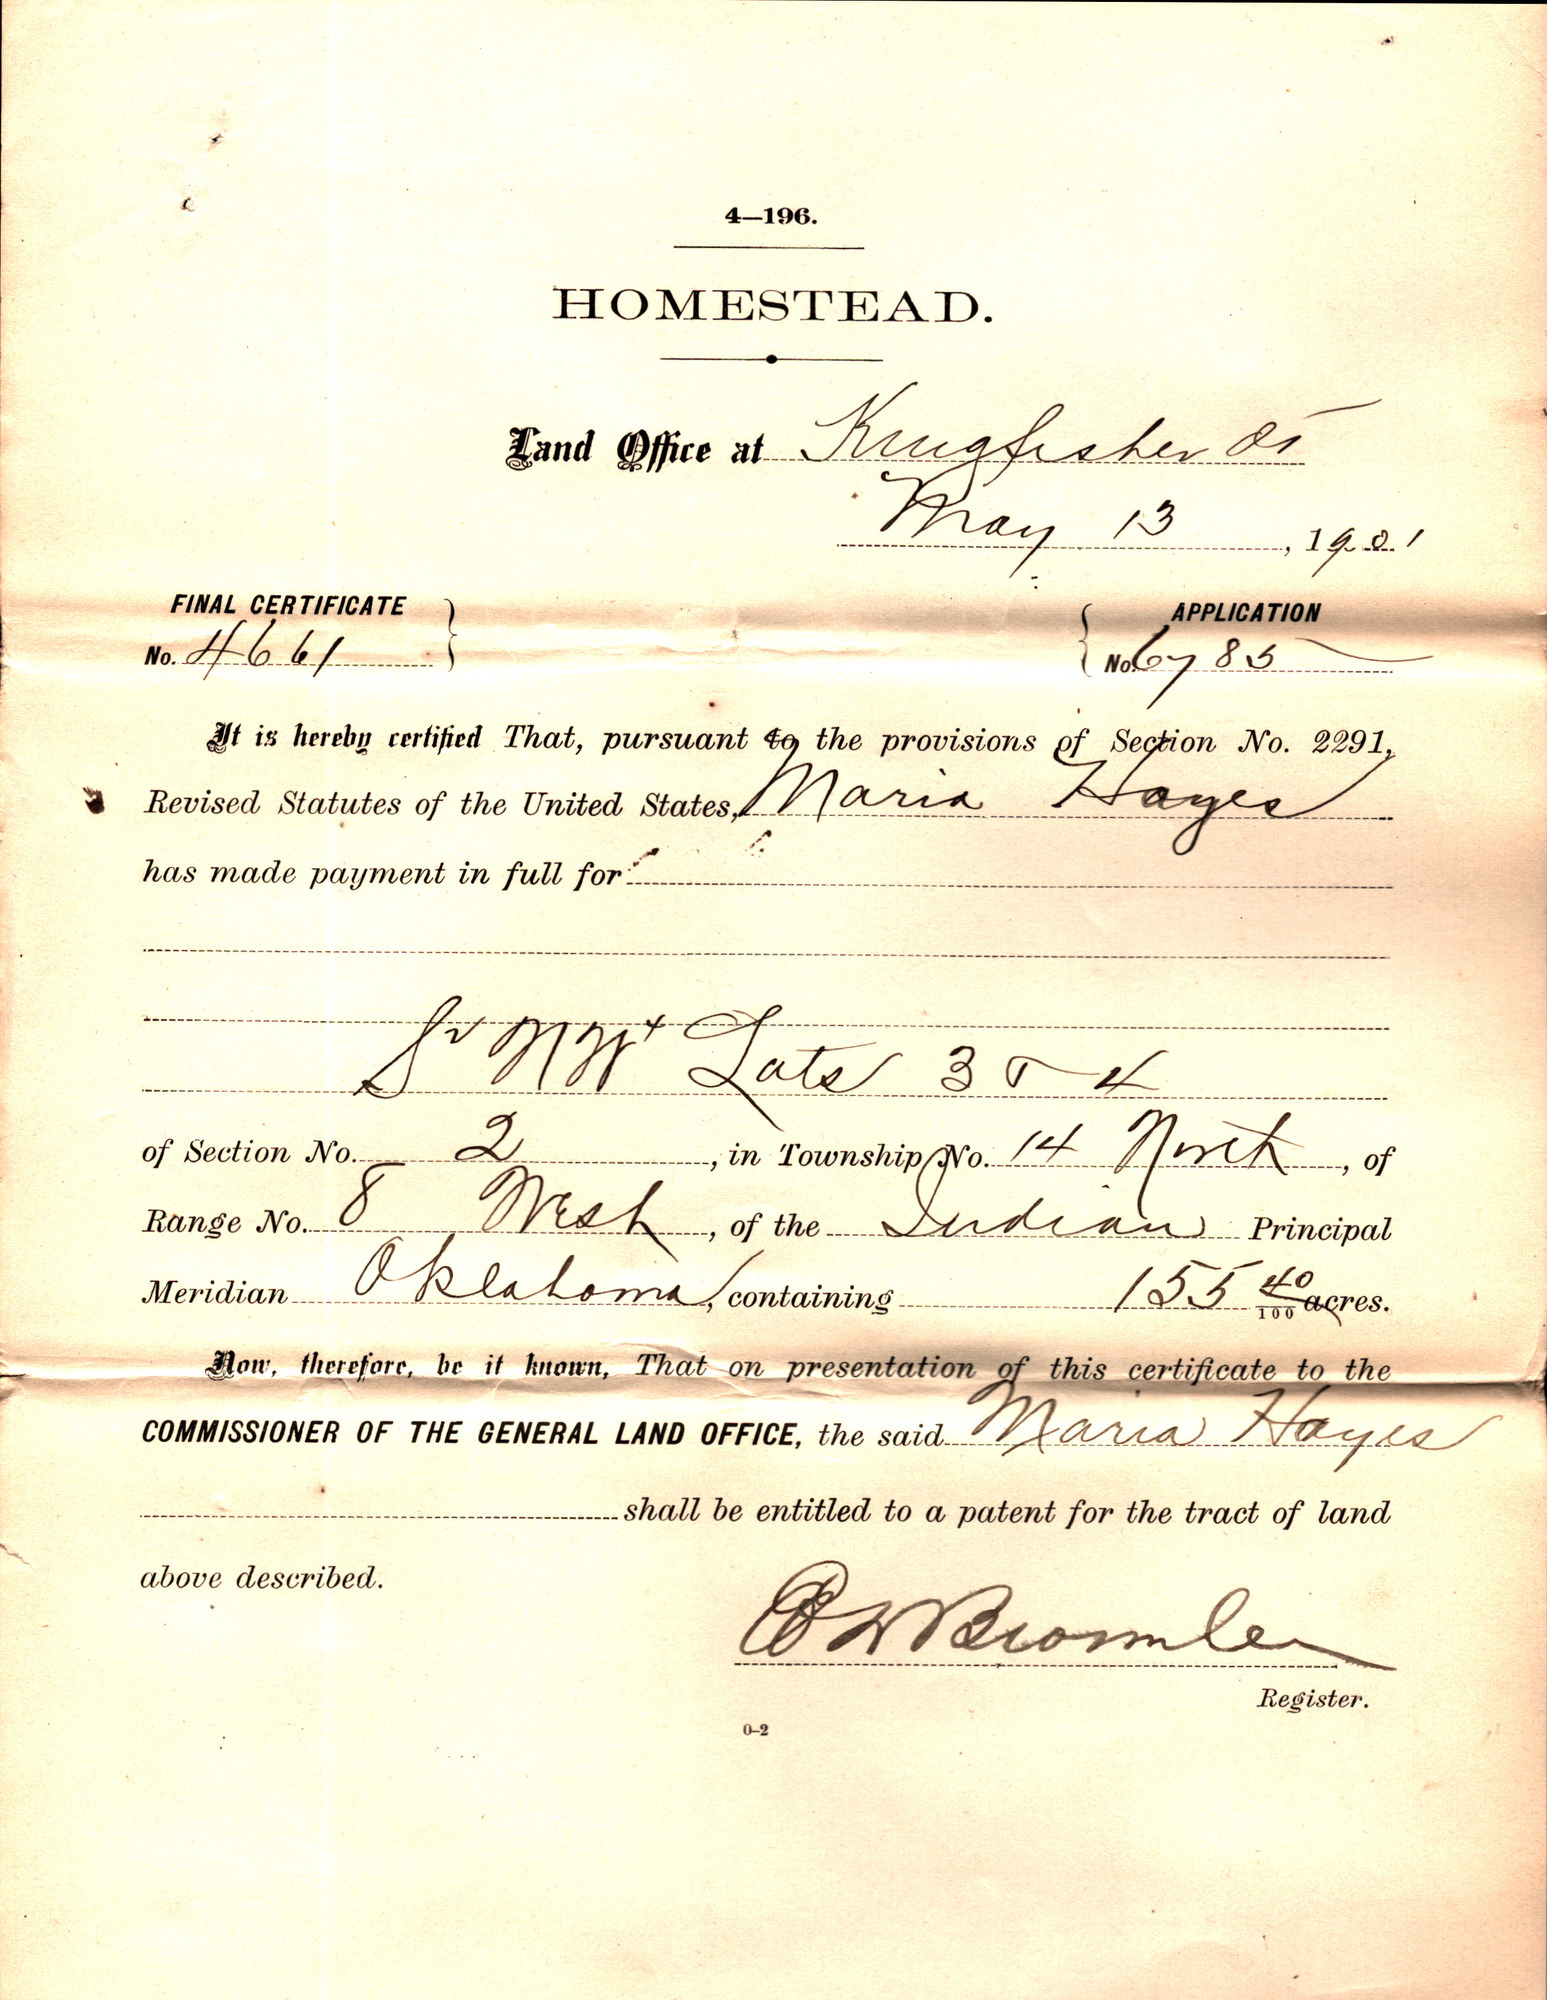 4—196.
HOMESTEAD.
Land Office at Kingfisher OT
May 13, 1901
FINAL CERTIFICATE
No. 4661
APPLICATION
No. 6785
It is hereby certified That, pursuant to the provisions of Section No. 2291,
Revised Statutes of the United States, Maria Hayes
has made payment in full for
NW Lots 3 & 4
of Section No. 2, in Township No. 14 North, of
Range No. 8 West, of the Indian Principal
Meridian Oklahoma, containing 155 40/100 acres.
Now, therefore, be it known, That on presentation of this certificate to the
COMMISSIONER OF THE GENERAL LAND OFFICE, the said Maria Hayes
shall be entitled to a patent for the tract of land
above described.
Register.
0-2